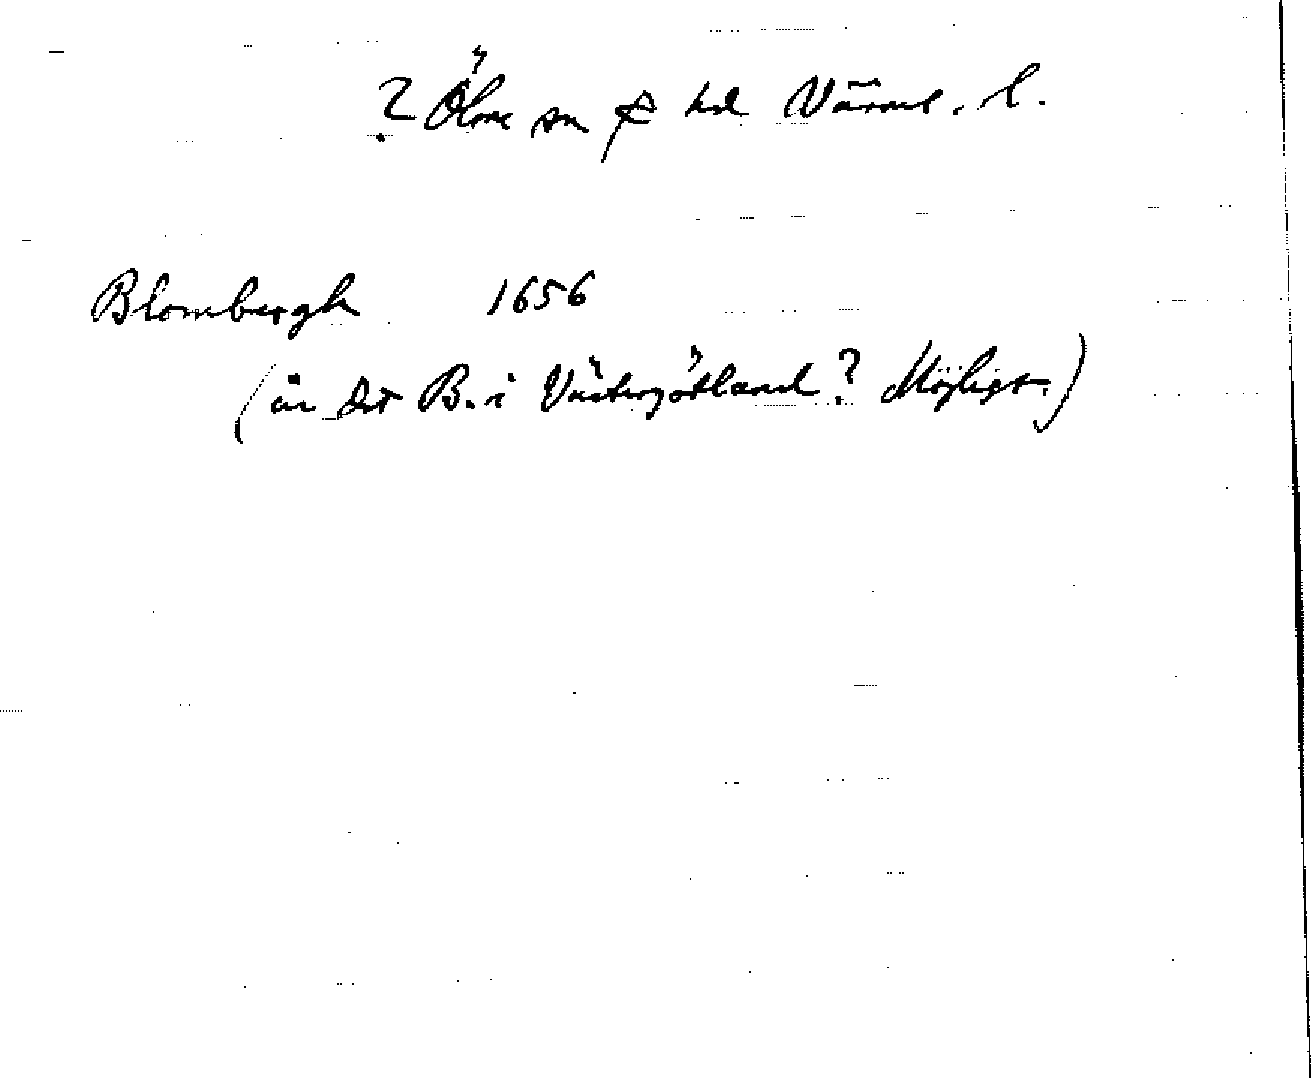 ? Ölme sn o hd Värml. l.
Blombergh 1656
(är det B. i Västergötland? Möjligt.)